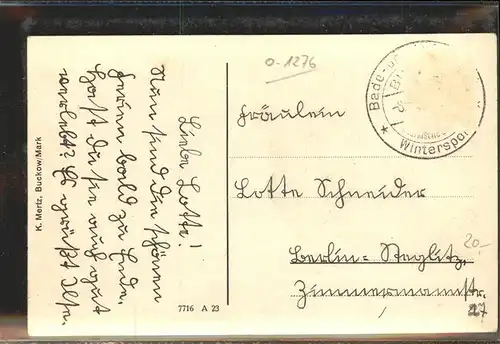 Liebe Lotte!
Nun sind die schönen
Ferien bald zu Ende.
Hast du sie auch gut
verlebt? Es grüßt Ilse.
K. Mertz, Buckow/Mark
7716 A 23
0-1276
Bade-
Winterspor
Fräulein
Lotte Schneider
Berlin-Steglitz,
Zimmermannstr.
27
20.-